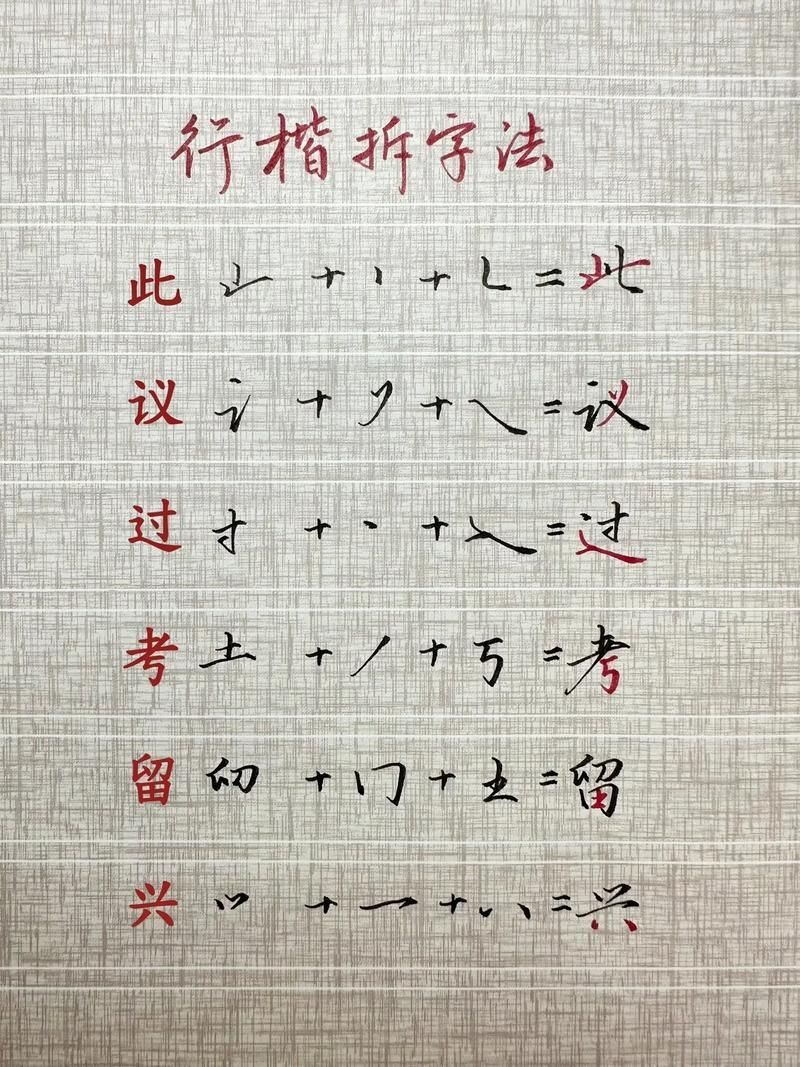 行楷拆字法
此 山 + 丶 + 乚 = 此
议 讠 + 丷 + 乀 = 议
过 寸 + 丶 + 辶 = 过
考 土 + 丿 + 丂 = 考
留 卯 + 冂 + 土 = 留
兴 ⺍ + 一 + 八 = 兴